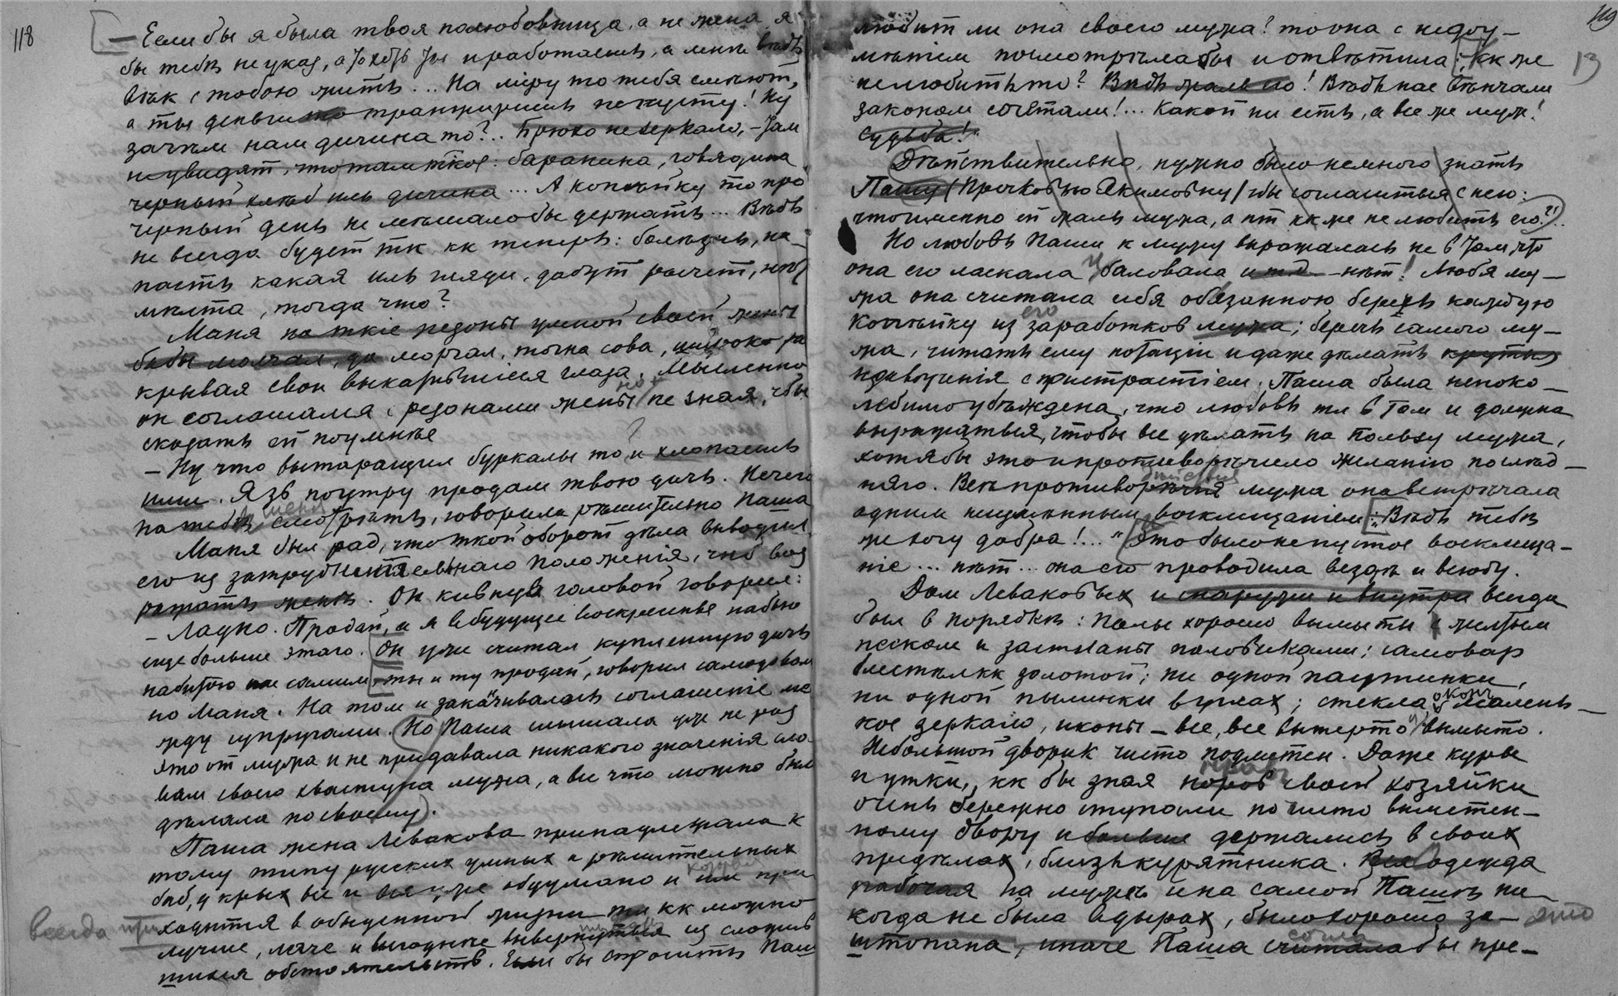 118
— Если бы я была твоя полюбовница, а не жена я
бы тебѣ не указ, а то вѣдь ты и работаешь, а мне вѣдь
вѣк с тобою жить... На міру то тебя смѣют,
а ты деньги то транжиришь попусту! Ну
зачѣм нам дичина то?.. Брюхо не зеркало, – там
не увидят, что там ткое: баранина, говядина
черный хлѣб иль дичина... А копѣйку то про
черный день не мѣшало бы держать... Вѣдь
не всегда будет тк кк теперь: болѣзнь, на-
пасть какая иль гляди, дадут расчет, нѣт
мѣста, тогда что?
Маня на ткіе резоны умной своей жены
молчал, точно сова, широко ра
крывая свои выкатившіеся глаза. Мысленно
он соглашался с резонами жены но не зная, чбы
сказать ей поумнѣе
— Ну что вытаращил буркалы то и хлопаешь
ими. Я зѣ поутру продам твою дичь. Нечего
на тебя смотрѣть, говорила рѣшительно Паша
Маня был рад, что ткой оборот дѣла выводил
его из затруднительнаго положенія, чтб воз
ражать женѣ. Он кивнув головой говорил:
– Ладно. Продай, а я в будущее воскресенье набью
еще больше этаго. Он уже считал купленную дичь
набитою им самим – ты и ту продай, говорил самодоволь
но Маня. На том и заканчивалось соглашеніе ме
жду супругами. Но Паша слышала уже не раз
это от мужа и не придавала никакого значенія сло
вам своего хвастуна мужа, а все что можно было
дѣлала по своему.
Паша жена Левакова принадлежала к
тому типу русских умных и рѣшительных
баб, у крых все и вся уже обдумано и им при
ходится в обыденной жизни кк можно
всегда при
лучше, легче и выгоднѣе вывернуться из сложив
шихся обстоятельств. Если бы спросить Паш
119
13
любит ли она своего мужа? то она с недоу-
мѣніем посмотрѣла бы и отвѣтила: Кк же
не любить то? Вѣдь жаль его! Вѣдь нас вѣнчали
законом сочетали!... Какой ни есть, а все же муж!
Судьба!
Дѣйствительно, нужно было немного знать
Пашу (Просковью Якимовну) чбы согласиться с нею:
что именно ей жаль мужа, а нт кк же не любить его?!..
Но любовь Паши к мужу выражалась не в том, чт
она его ласкала и баловала и т.д. – нѣт! Любя му-
жа она считала себя обязанною беречь каждую
копѣйку из его заработков мужа; беречь самого му-
жа, читать ему нотаціи и даже дѣлать крутыя
с пристрастіем. Паша была непоко-
лебимо убѣждена, что любовь тк в том и должна
выражаться, чтобы все дѣлать на пользу мужа,
хотя бы это и противорѣчило желанію послѣд-
няго. Всѣ противорѣчія мужа она встрѣчала
одним неизмѣнным восклицаніем: Вѣдь тебѣ
же хочу добра!..." Это было не пустое восклица-
ніе... нѣт... она его проводила вездѣ и всюду.
Дом Леваковых и снаружи и внутри всегда
был в порядкѣ: полы хорошо вымыты с желтым
песком и застланы половиками; самовар
блестѣл кк золотой; ни одной паутинки,
ни одной пылинки в углах; стекла окон, малень-
кое зеркало, иконы – все, все вытерто и вымыто.
Небольшой дворик чисто подметен. Даже куры
и утки, кк бы зная норов своей хозяйки
очень бережно ступали по чисто выметен-
ному двору и больше держались в своих
предѣлах, близь курятника. Вся одежда
рабочая на мужѣ и на самой Пашѣ ни
когда не была в дырах, было хорошо за-
это
штопана, иначе Паша считала бы пре-